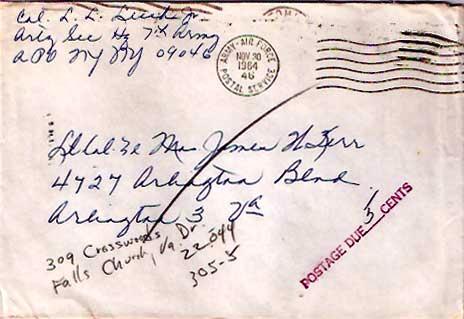 Col. L. L.
Arty Sec Hq 7th Army
APO NY NY 09046
ARMY-AIR FORCE
POSTAL SERVICE
NOV 30
1964
46
Lt Col & Mrs James N Kerr
4727 Arlington Blvd
Arlington 3 Va
309 Crosswoods Dr
Falls Church, Va.
22044
305-5
POSTAGE DUE 5 CENTS